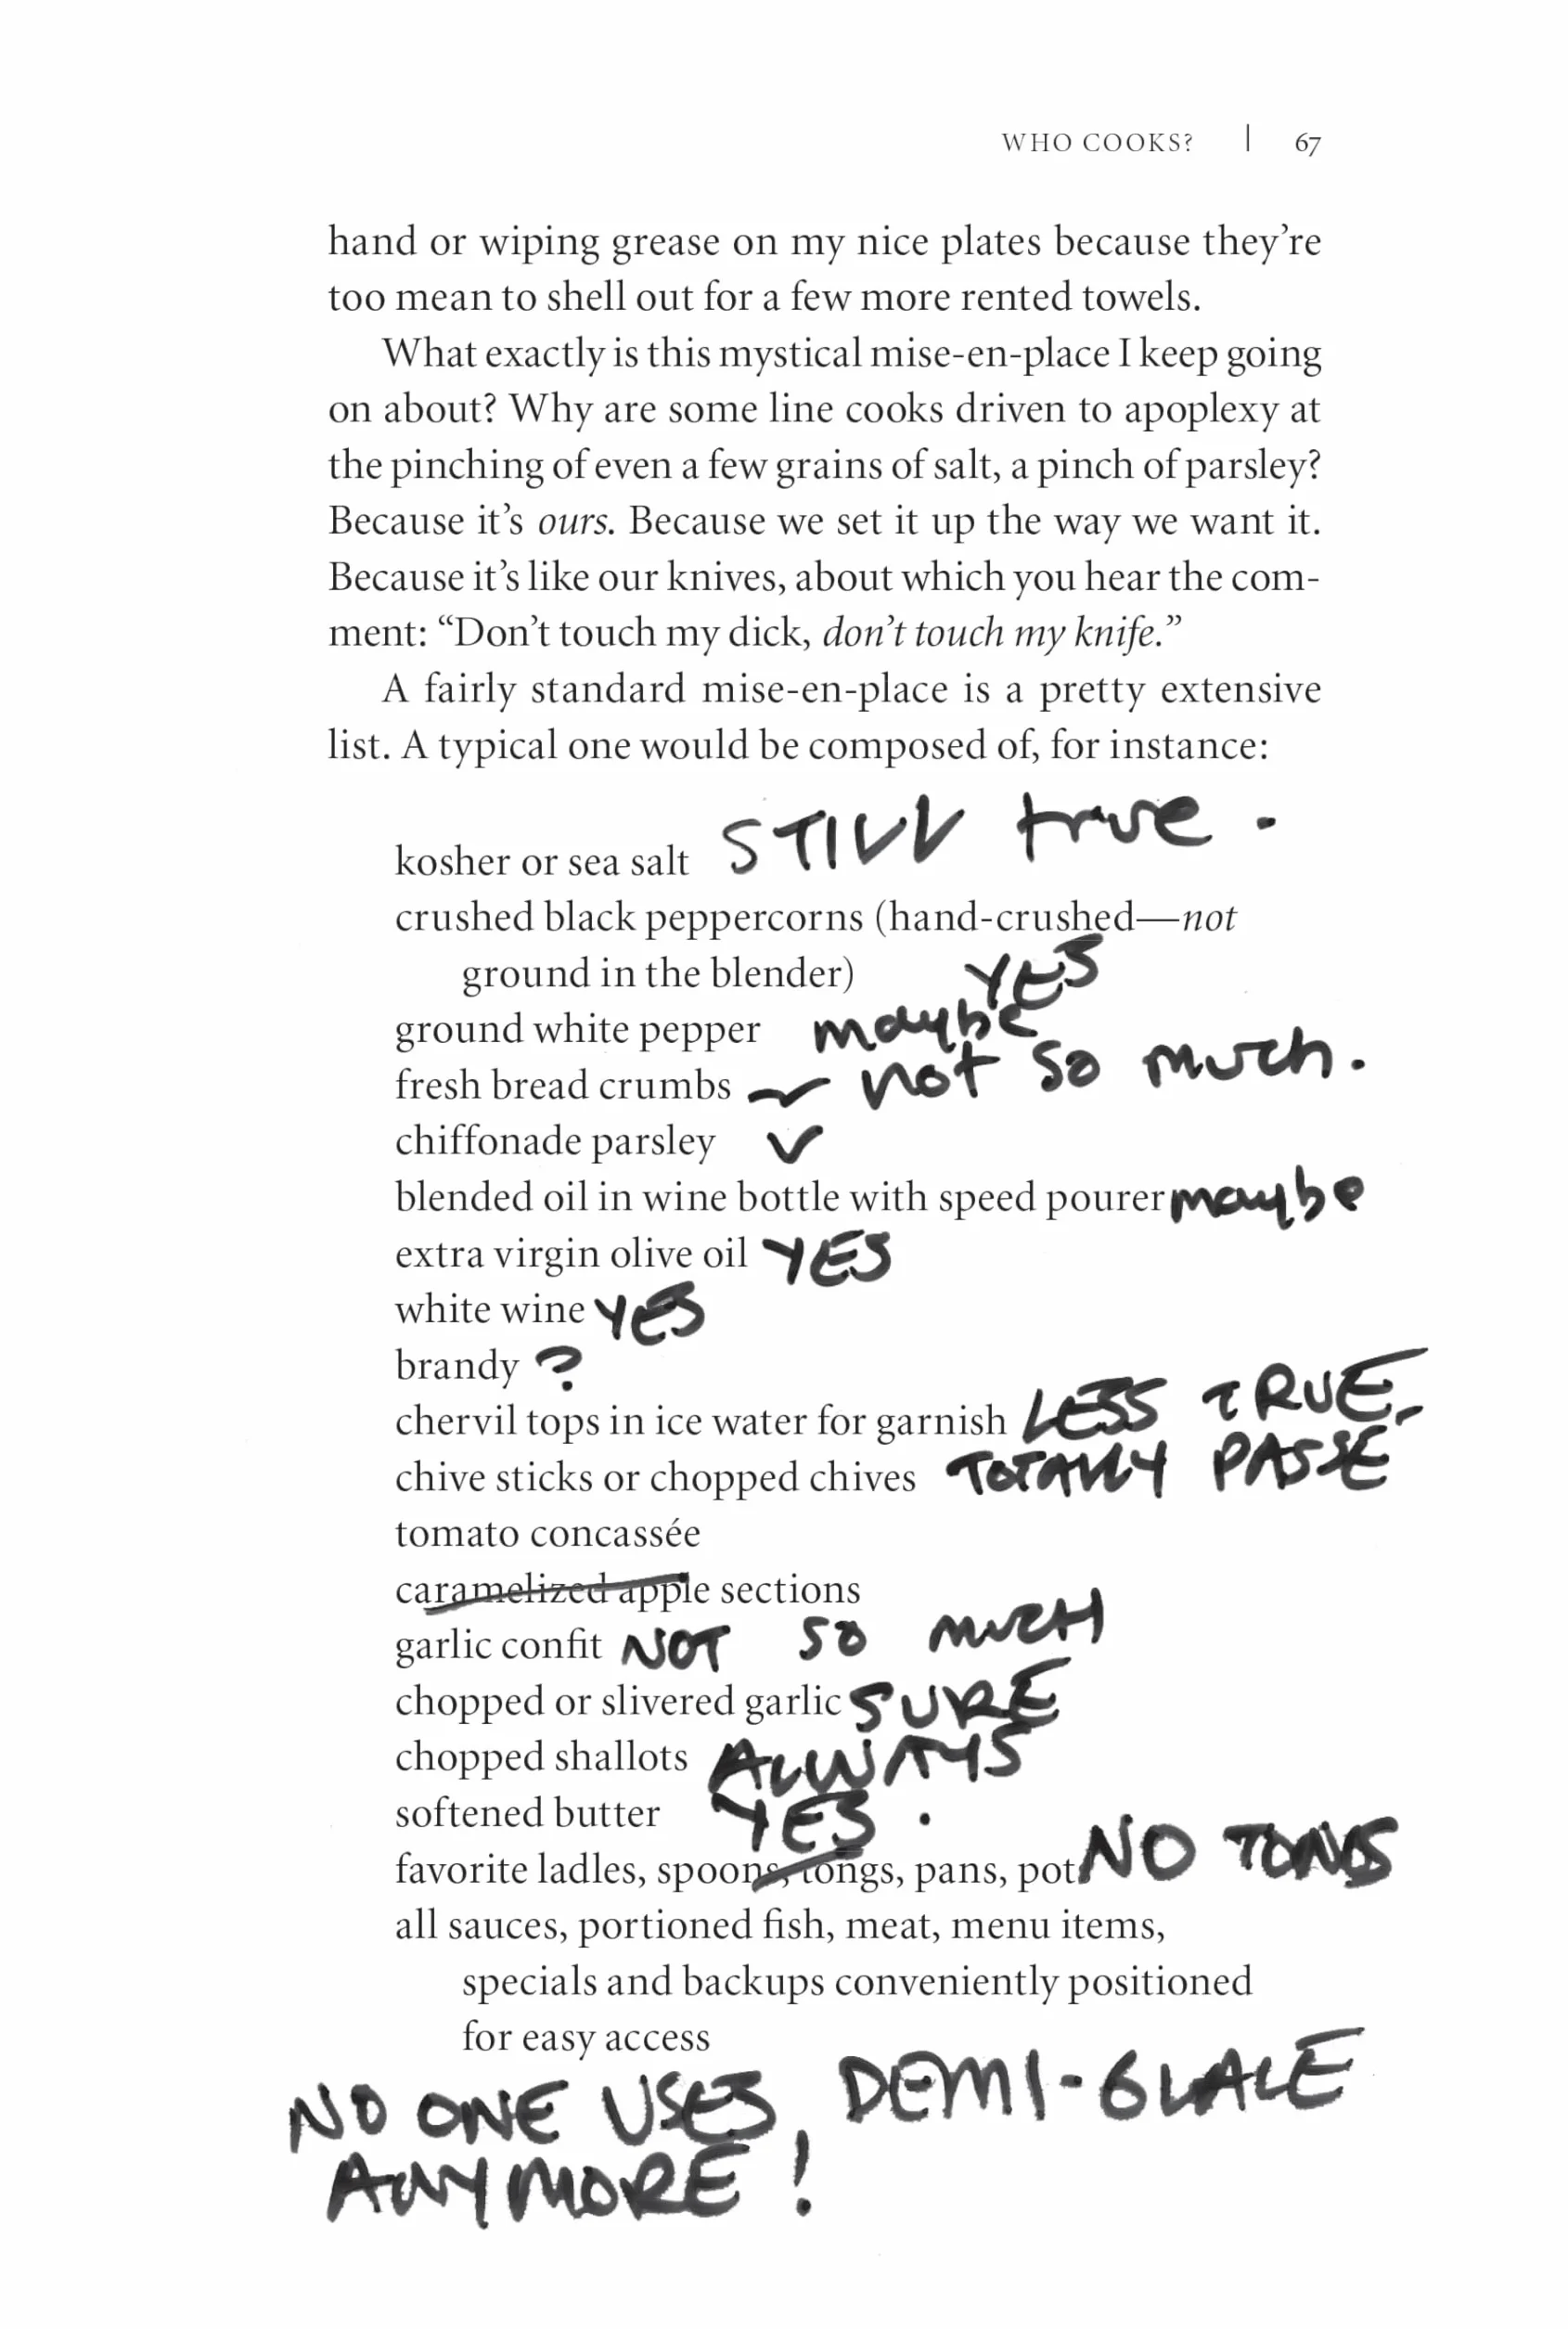 WHO COOKS? | 67
hand or wiping grease on my nice plates because they’re
too mean to shell out for a few more rented towels.
What exactly is this mystical mise-en-place I keep going
on about? Why are some line cooks driven to apoplexy at
the pinching of even a few grains of salt, a pinch of parsley?
Because it’s ours. Because we set it up the way we want it.
Because it’s like our knives, about which you hear the com-
ment: “Don’t touch my dick, don’t touch my knife.”
A fairly standard mise-en-place is a pretty extensive
list. A typical one would be composed of, for instance:
kosher or sea salt STILL true.
crushed black peppercorns (hand-crushed—not
ground in the blender) YES
ground white pepper maybe
fresh bread crumbs not so much.
chiffonade parsley ✓
blended oil in wine bottle with speed pourer maybe
extra virgin olive oil YES
white wine YES
brandy ?
chervil tops in ice water for garnish LESS TRUE.
chive sticks or chopped chives TOTALLY PASSE
tomato concassée
caramelized apple sections
garlic confit NOT SO MUCH
chopped or slivered garlic SURE
chopped shallots ALWAYS
softened butter YES.
favorite ladles, spoons, tongs, pans, pot NO TONGS
all sauces, portioned fish, meat, menu items,
specials and backups conveniently positioned
for easy access
NO ONE USES DEMI-GLACE
ANYMORE!